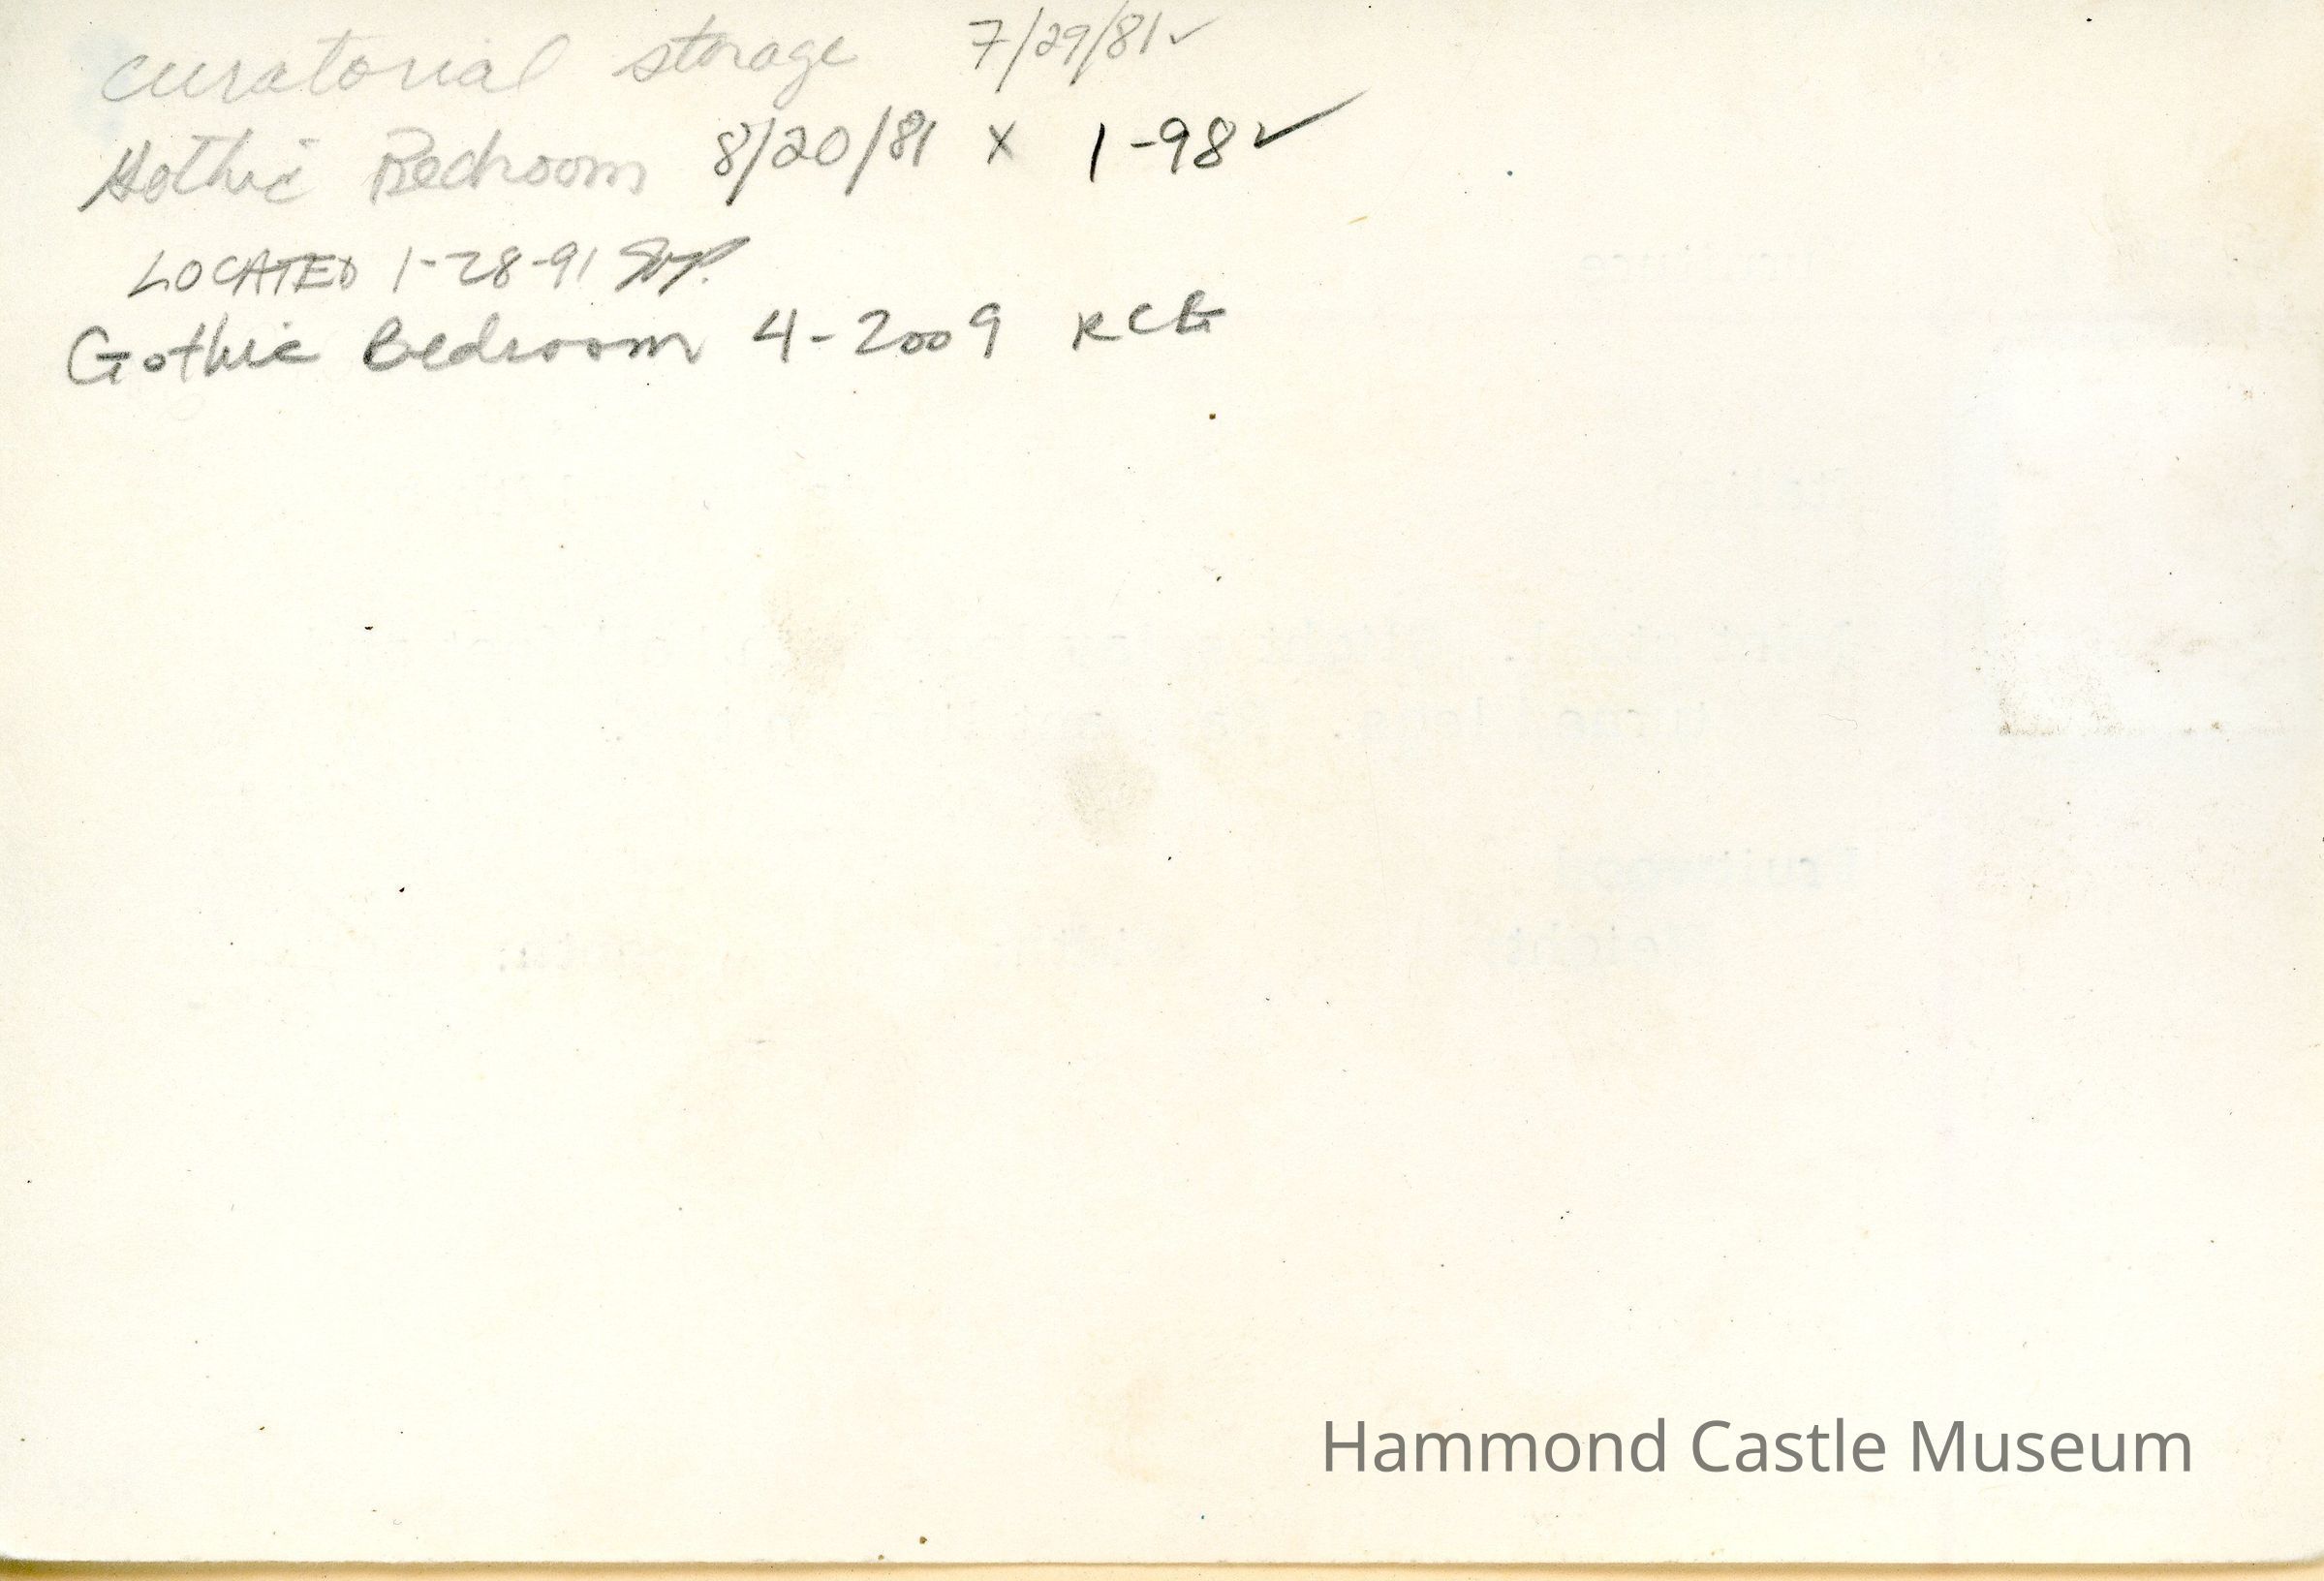 curatorial storage 7/29/81 ✓
Gothic Bedroom 8/20/81 x 1-98 ✓
LOCATED 1-28-91
Gothic Bedroom 4-2009 RCG
Hammond Castle Museum